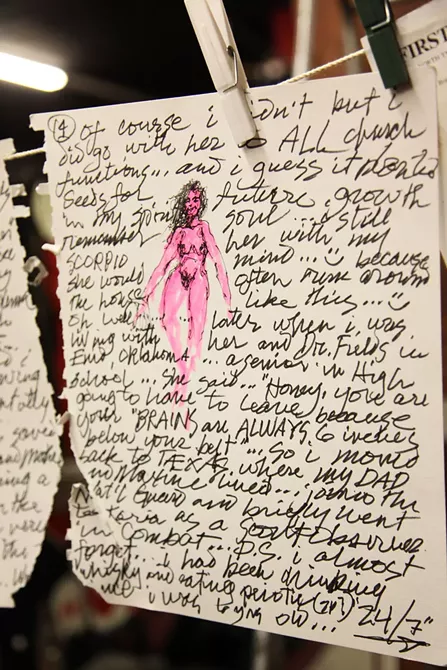 FIRST
(14) Of course i didn't but i
did go with her to ALL church
functions... and i guess it planted
Seeds for future growth
in my soul... i still
remember her with my
SCORPIO mind... because
she would often run around
the house like this...
Oh well... later when i was
living with her and Dr. Fields in
Enid, Oklahoma... a senior in High
School... She said... "Honey, you are
going to have to leave because
your "BRAINS are ALWAYS 6 inches
below your belt"... So i moved
back to TEXAS, where my DAD
and Maxine lived... joined the
Nat'l Guard and briefly went
to as a Scout Observer
in Combat... P.S. i almost
forget... i had been drinking
whisky and eating
i was old... 24/7"